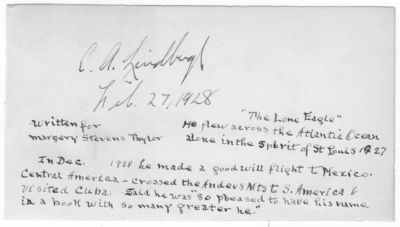 C. A. Lindbergh
Feb. 27, 1928
"The Lone Eagle"
Written for
Margery Stevens Taylor
He flew across the Atlantic Ocean
alone in the Spirit of St Louis 1927
In Dec. 1928 he made a good will flight to Mexico.
Central America - crossed the Andees Mts to S. America &
visited Cuba. Said he was "so pleased to have his name
in a book with so many greater he."